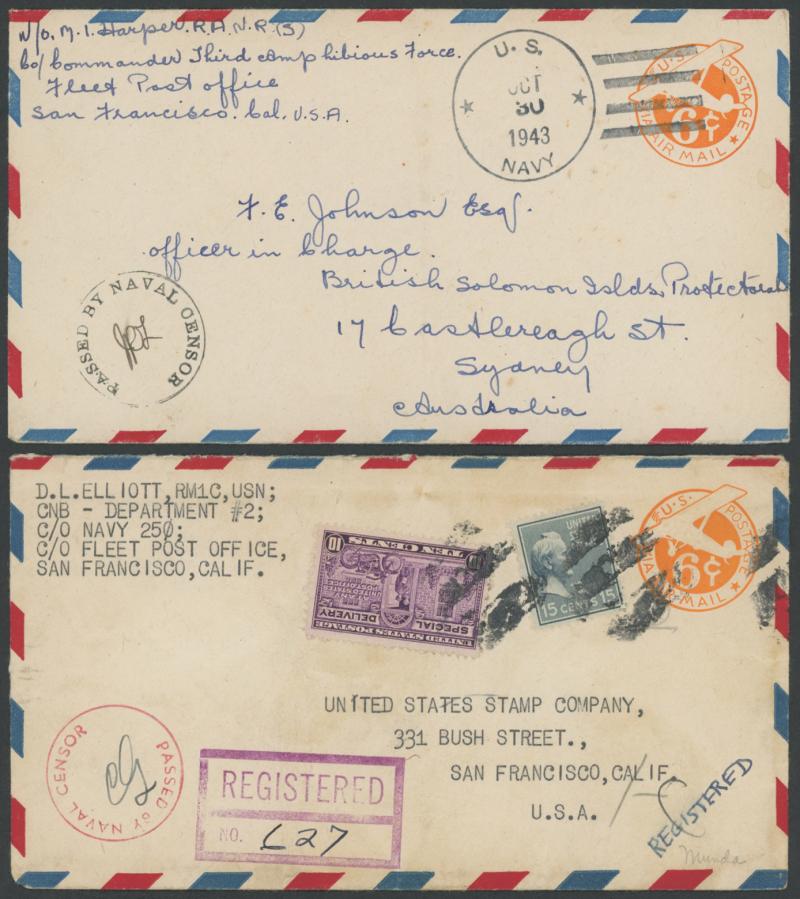 W/o. M. I. Harper. R.A.N.R. (S)
Co/ Commander Third amphibious Force.
Fleet Post office
San Francisco. Cal. U.S.A.
U.S.
OCT
30
1943
NAVY
U.S. POSTAGE
6¢
VIA AIR MAIL
F. E. Johnson Esq.
officer in Charge.
British Solomon Islds. Protectorate
17 Castlereagh St.
Sydney
Australia
PASSED BY NAVAL CENSOR
D.L.ELLIOTT,RM1C,USN;
CNB - DEPARTMENT #2;
C/O NAVY 250;
C/O FLEET POST OFFICE,
SAN FRANCISCO,CALIF.
UNITED STATES POSTAGE
SPECIAL
DELIVERY
AT ANY
UNITED STATES
POST OFFICE
10 TEN CENTS 10
UNITED
15 CENTS 15
U.S. POSTAGE
6¢
VIA AIR MAIL
UNITED STATES STAMP COMPANY,
331 BUSH STREET.,
SAN FRANCISCO,CALIF.
U.S.A.
PASSED BY NAVAL CENSOR
REGISTERED
NO. L27
REGISTERED
Munda